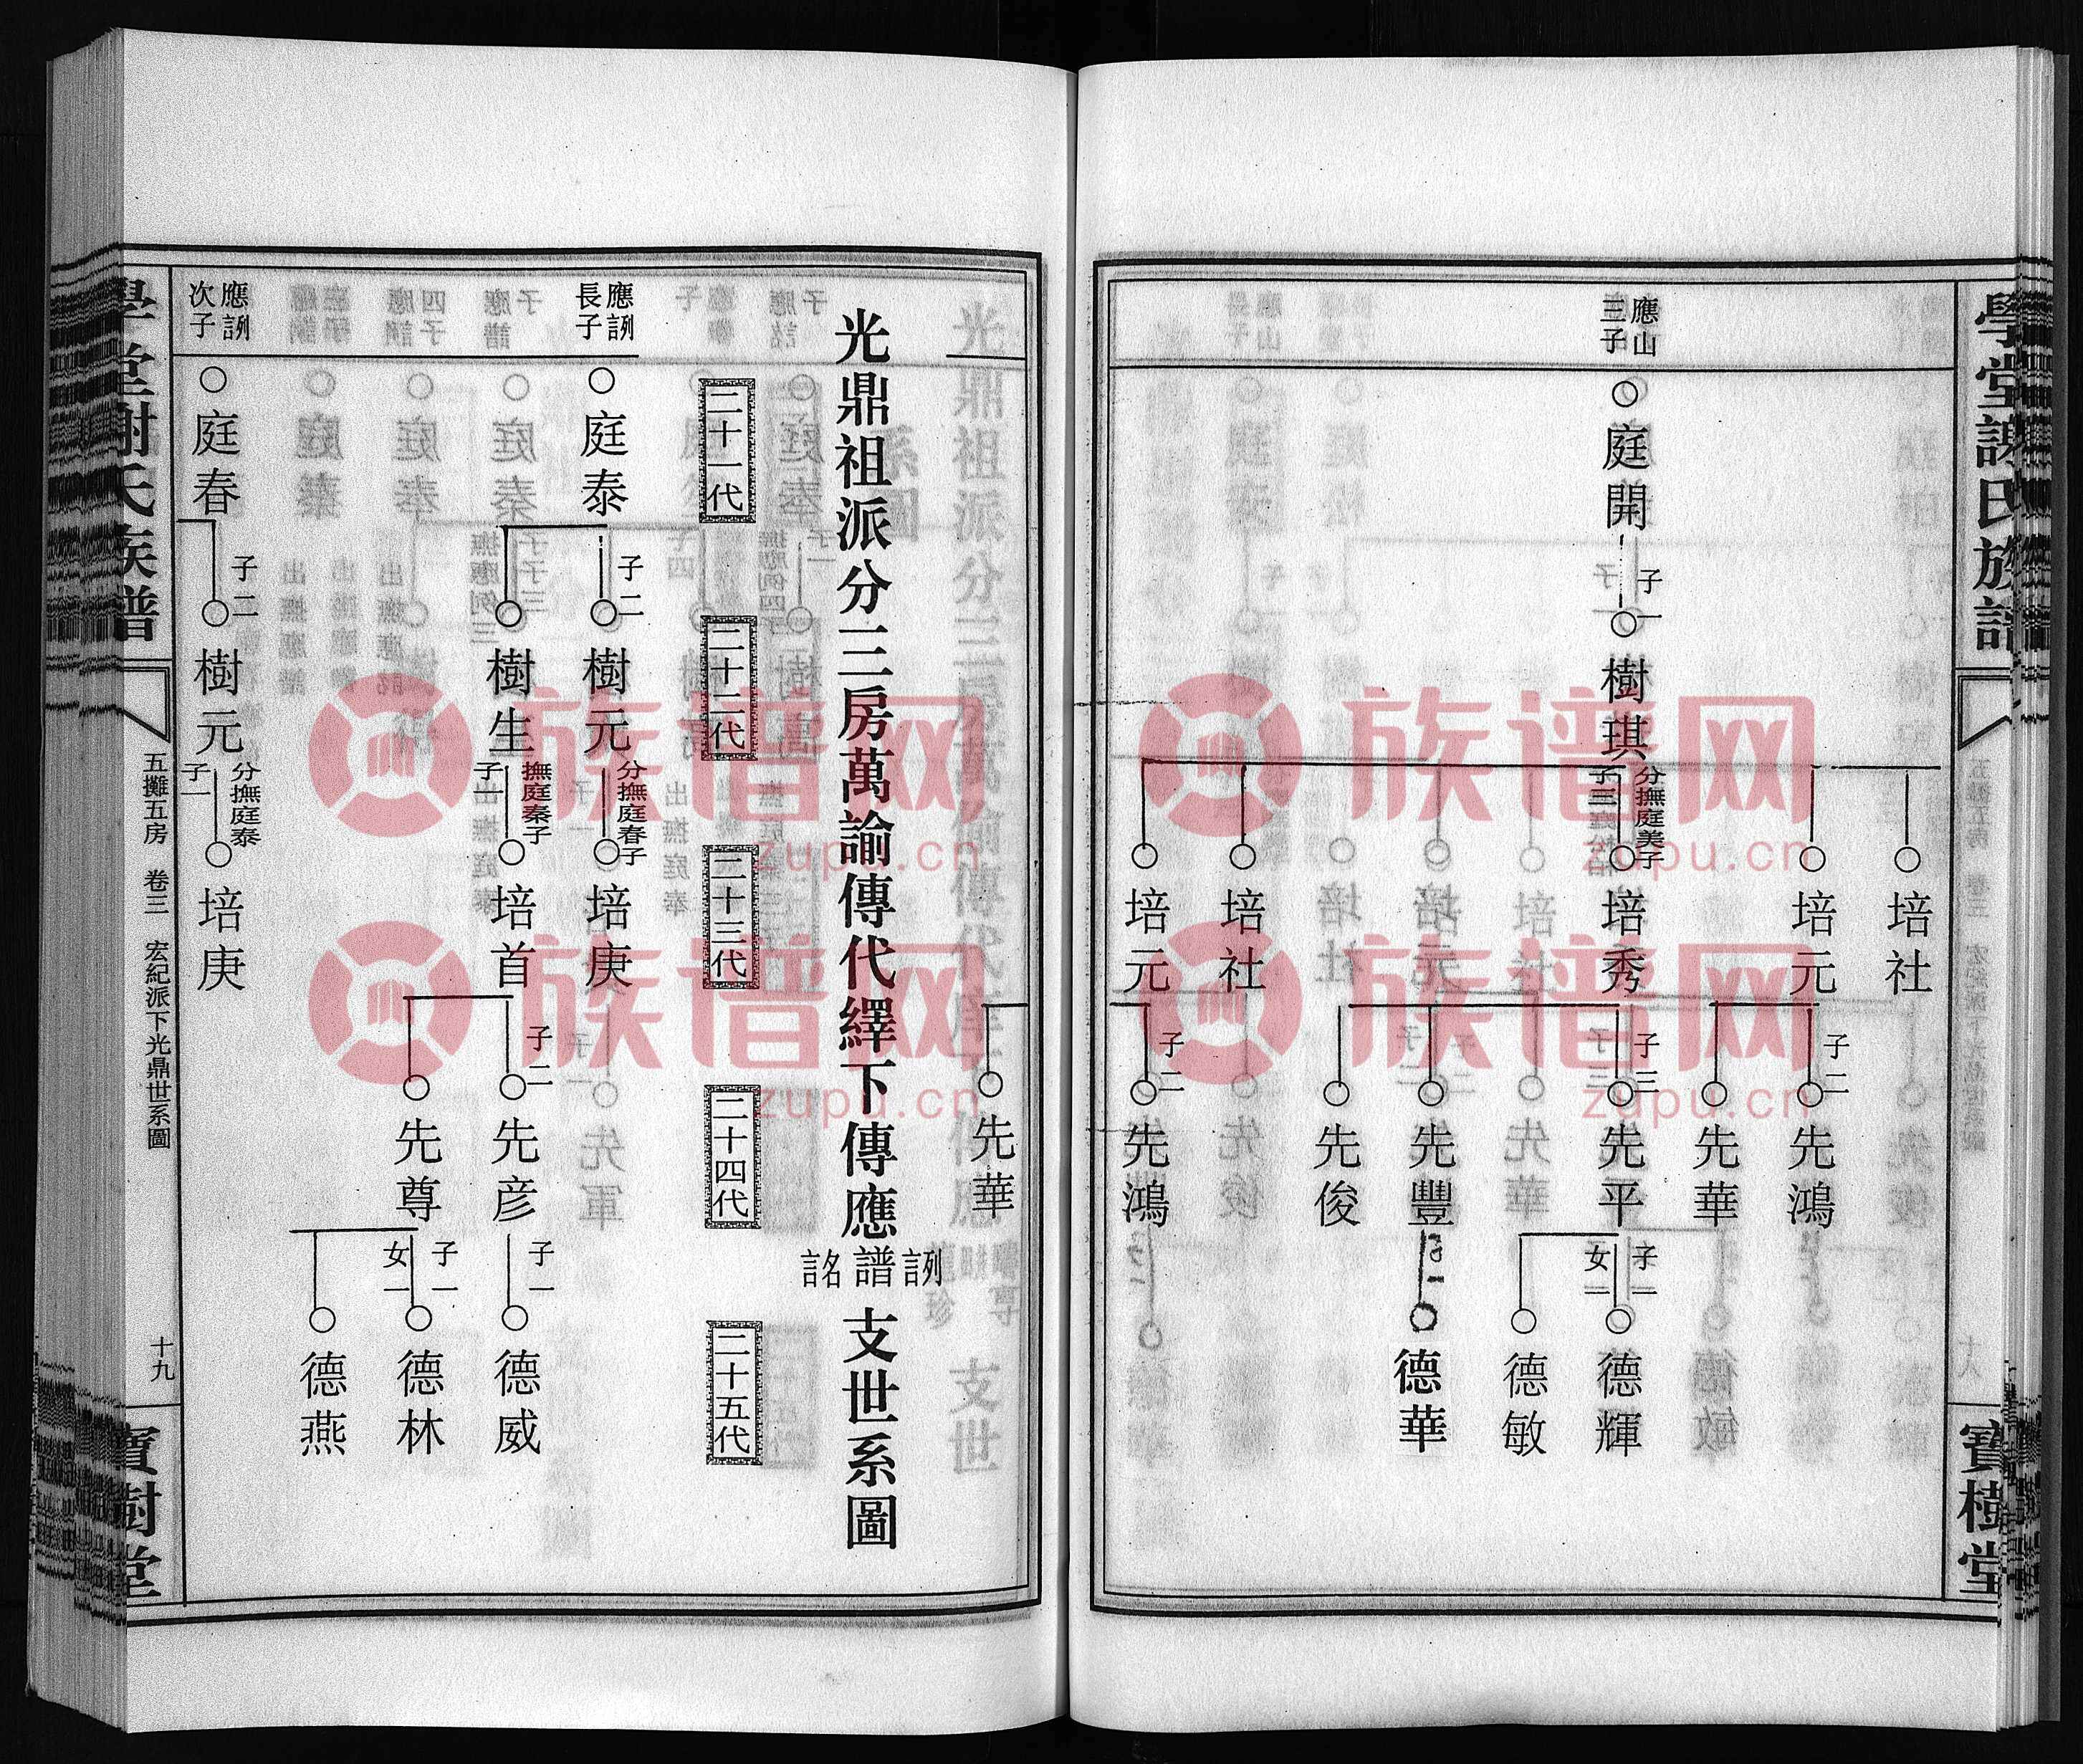 學堂謝氏族譜
寶樹堂
應山
三子
庭開
子一
樹琪
分撫庭美子
子三
培社
培元
培秀
培社
培元
子二
先鴻
先華
子三
先平
先豐
先俊
子二
先鴻
子一
女一
德輝
德敏
德華
先華
光鼎祖派分三房萬諭傳代繹下傳應
詺譜
支世系圖
二十一代
二十二代
二十三代
二十四代
二十五代
長子
庭泰
子二
樹元
分撫庭春子
培庚
樹生
撫庭秦子
子一
培首
子二
先彦
先尊
子一
德威
子一
女一
德林
德燕
次子
庭春
子二
樹元
分撫庭泰
子一
培庚
學堂謝氏族譜
五攤五房 卷三 宏紀派下光鼎世系圖
十九
寶樹堂
族谱网
zupu.cn
族谱网
zupu.cn
族谱网
zupu.cn
族谱网
zupu.cn